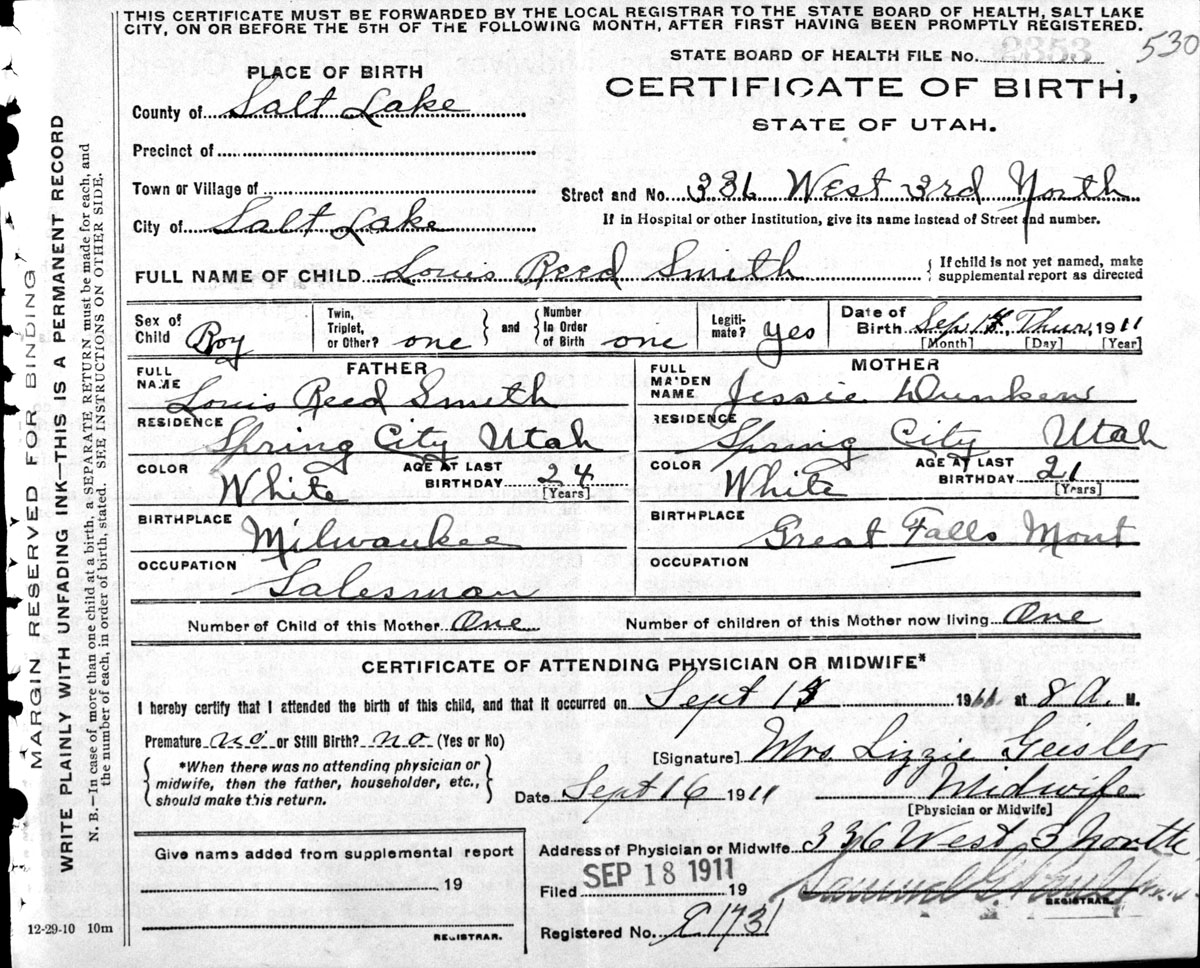 THIS CERTIFICATE MUST BE FORWARDED BY THE LOCAL REGISTRAR TO THE STATE BOARD OF HEALTH, SALT LAKE
CITY, ON OR BEFORE THE 5TH OF THE FOLLOWING MONTH, AFTER FIRST HAVING BEEN PROMPTLY REGISTERED.
530
STATE BOARD OF HEALTH FILE No. 2353
PLACE OF BIRTH
CERTIFICATE OF BIRTH,
STATE OF UTAH.
County of Salt Lake
Precinct of
Town or Village of
Street and No. 336 West 3rd North
City of Salt Lake
If in Hospital or other Institution, give its name instead of Street and number.
FULL NAME OF CHILD Louis Reed Smith
{ If child is not yet named, make
supplemental report as directed
Sex of Child Boy
Twin, Triplet, or Other? one
} and {
Number In Order of Birth one
Legiti-mate? yes
Date of Birth Sep 14 Thur, 1911
[Month] [Day] [Year]
FATHER
FULL NAME Louis Reed Smith
RESIDENCE Spring City Utah
COLOR White
AGE AT LAST BIRTHDAY 24
[Years]
BIRTHPLACE Milwaukee
OCCUPATION Salesman
MOTHER
FULL MAIDEN NAME Jessie Dunken
RESIDENCE Spring City Utah
COLOR White
AGE AT LAST BIRTHDAY 21
[Years]
BIRTHPLACE Great Falls Mont
OCCUPATION
Number of Child of this Mother One
Number of children of this Mother now living One
CERTIFICATE OF ATTENDING PHYSICIAN OR MIDWIFE*
I hereby certify that I attended the birth of this child, and that it occurred on Sept 14 1911. at 8 A. M.
Premature no or Still Birth? no (Yes or No)
[Signature] Mrs Lizzie Geisler
{ *When there was no attending physician or
midwife, then the father, householder, etc.,
should make this return. }
Date Sept 16 1911
Midwife
[Physician or Midwife]
Address of Physician or Midwife 336 West 3 North
Give name added from supplemental report
19
REGISTRAR.
Filed SEP 18 1911 19
Samuel G.
REGISTRAR.
Registered No. 1731
12-29-10 10m
MARGIN RESERVED FOR BINDING
WRITE PLAINLY WITH UNFADING INK—THIS IS A PERMANENT RECORD
N. B.—In case of more than one child at a birth, a SEPARATE RETURN must be made for each, and
the number of each, in order of birth, stated. SEE INSTRUCTIONS ON OTHER SIDE.